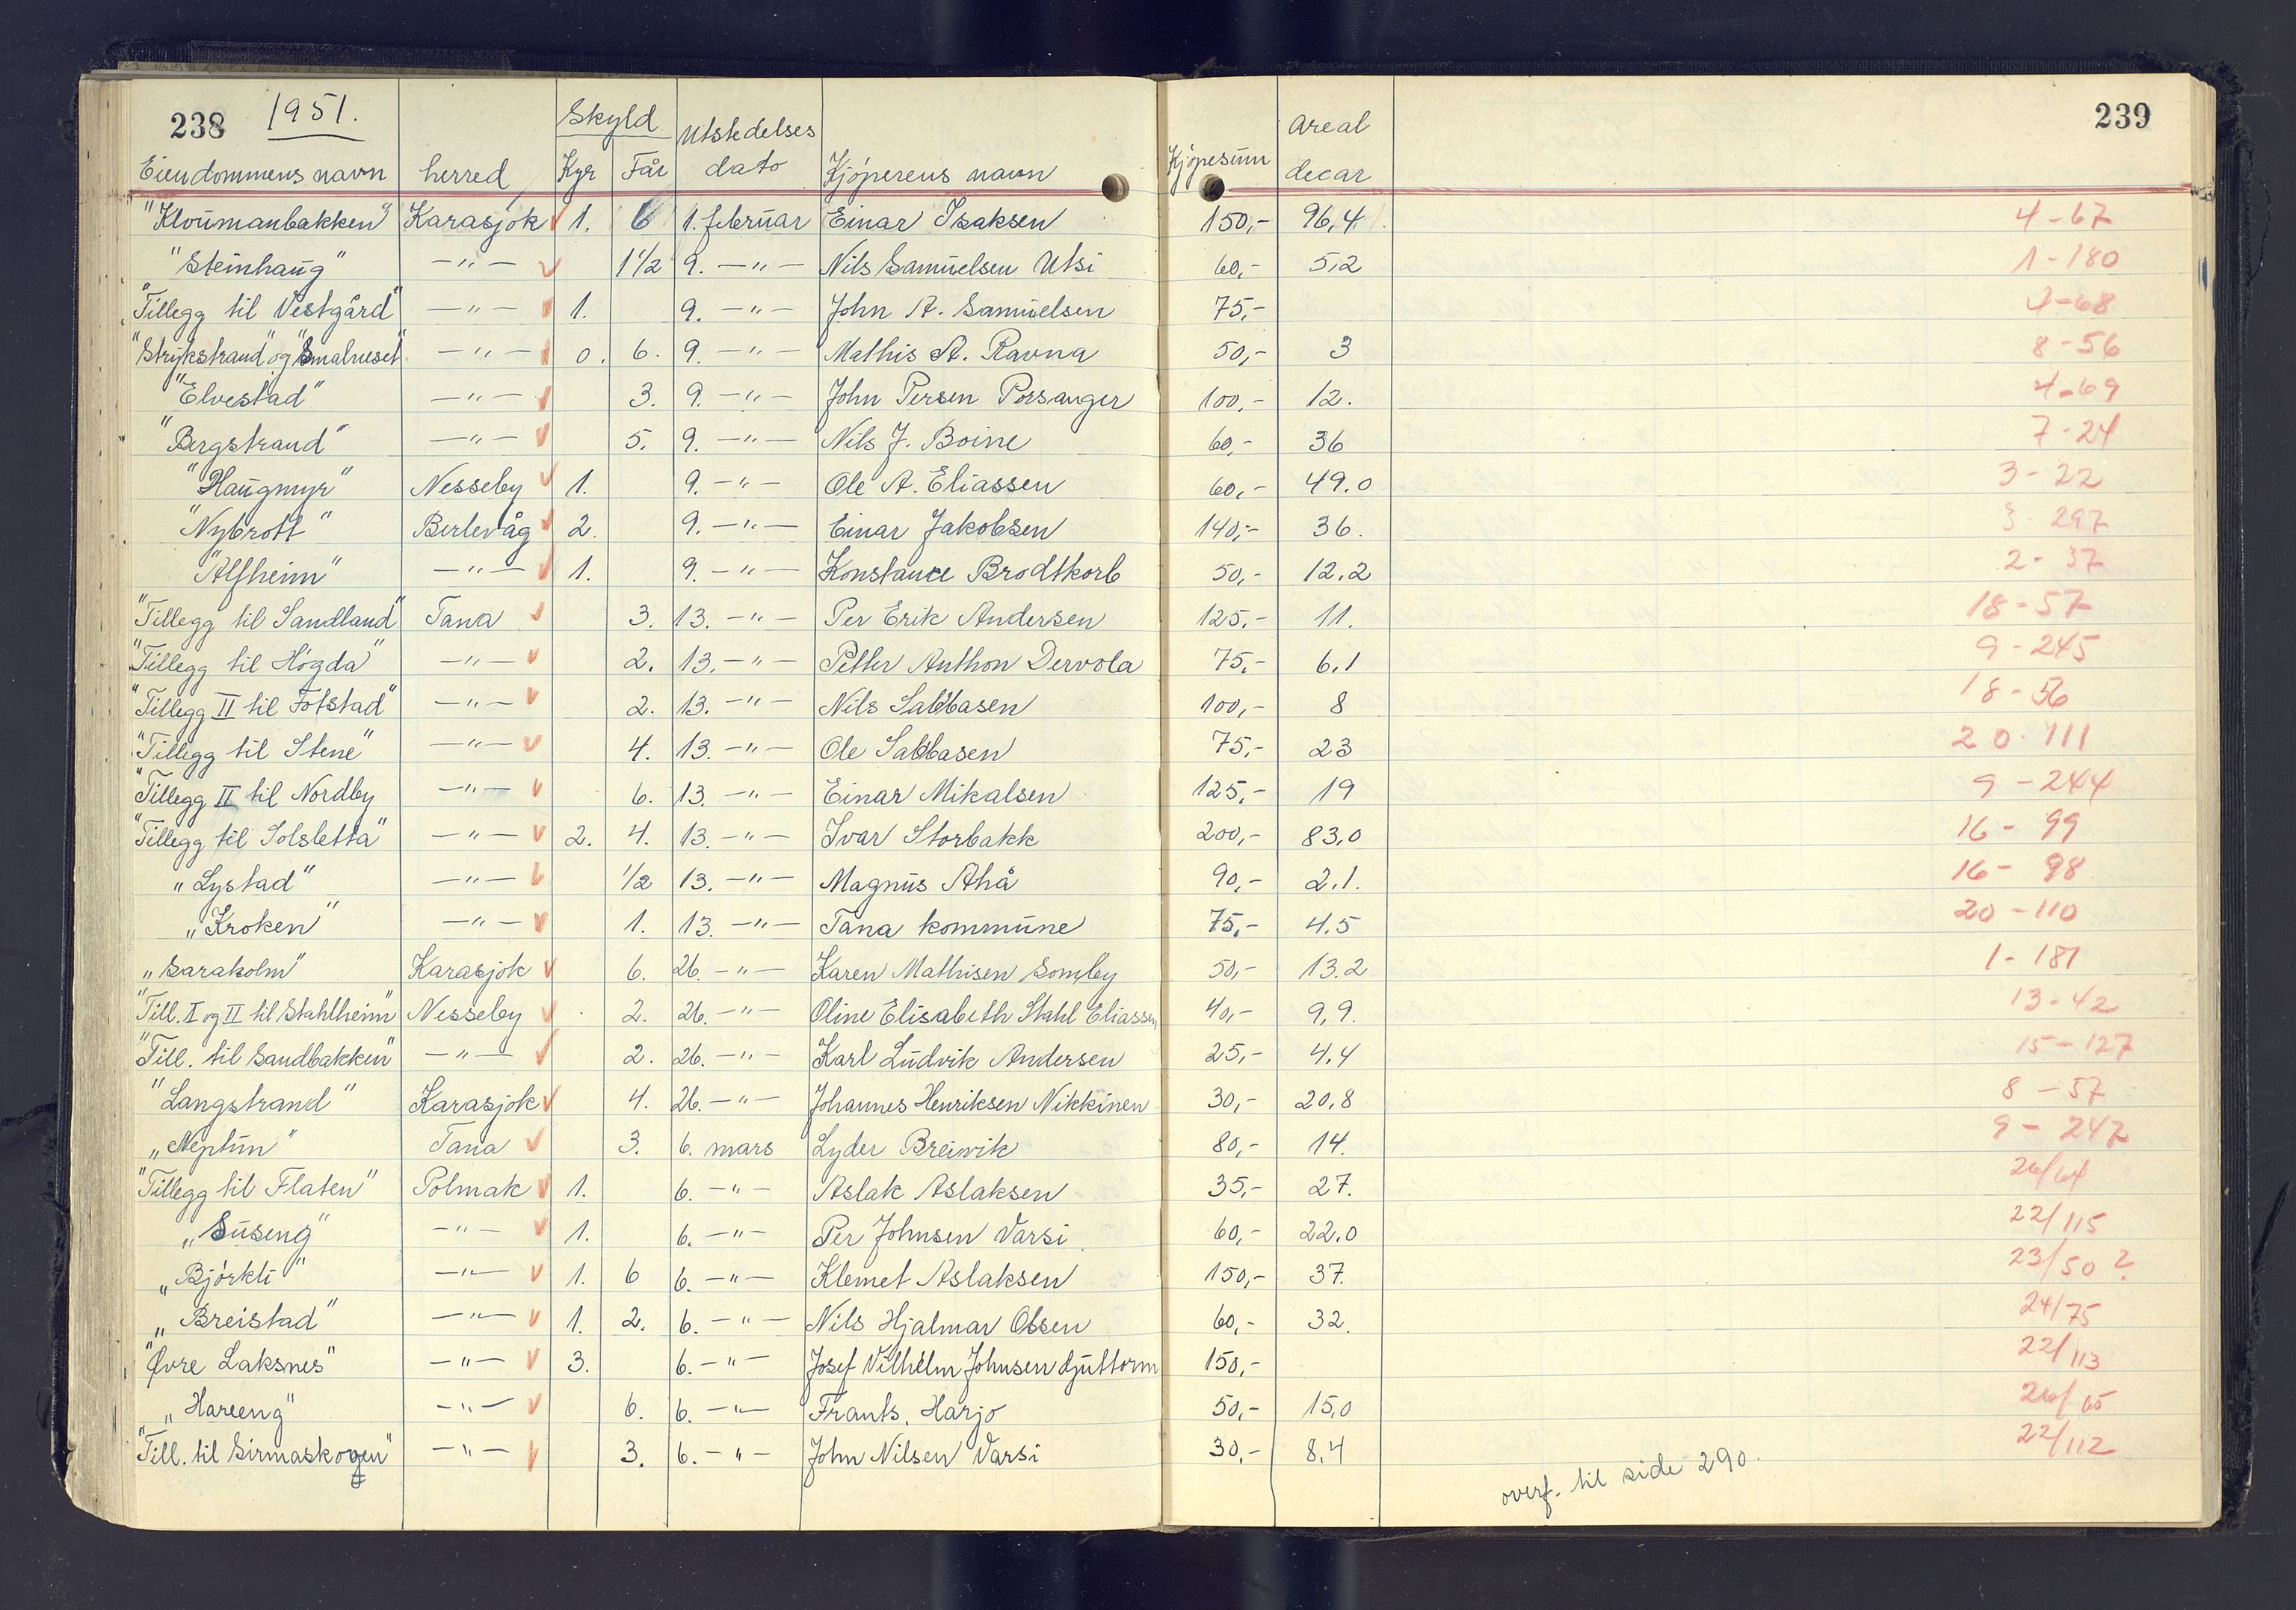 238 1951. 239
Skyld Utstedelses Areal
Eiendommens navn herred Kyr Får dato Kjøperens navn Kjøpesum decar
"Kloumanbakken" Karasjok v 1. 6 1. februar Einar Isaksen 150,- 96,4 4-67
"Steinhaug" —"— v 1½ 9. —"— Nils Samuelsen Utsi 60,- 5,2 1-180
"Tillegg til Vestgård" —"— v 1. 9. —"— John A. Samuelsen 75,- 4-68
"Strykstrand" og "Smalneset" —"— v 0. 6. 9. —"— Mathis A. Ravna 50,- 3 8-56
"Elvestad" —"— v 3. 9. —"— John Persen Porsanger 100,- 12. 4-69
"Bergstrand" —"— v 5. 9. —"— Nils J. Boine 60,- 36 7-24
"Haugmyr" Nesseby v 1. 9. —"— Ole A. Eliassen 60,- 49.0 3-22
"Nybrott" Berlevåg v 2. 9. —"— Einar Jakobsen 140,- 36. 3-297
"Alfheim" —"— v 1. 9. —"— Konstance Brodtkorb 50,- 12.2 2-37
"Tillegg til Sandland" Tana v 3. 13. —"— Per Erik Andersen 125,- 11. 18-57
"Tillegg til Høgda" —"— v 2. 13. —"— Petter Anthon Dervola 75,- 6.1 9-245
"Tillegg II til Fotstad" —"— v 2. 13. —"— Nils Sabbasen 100,- 8 18-56
"Tillegg til Stene" —"— v 4. 13. —"— Ole Sabbasen 75,- 23 20-111
"Tillegg II til Nordby —"— v 6. 13. —"— Einar Mikalsen 125,- 19 9-244
"Tillegg til Solsletta" —"— v 2. 4. 13. —"— Ivar Storbakk 200,- 83,0 16-99
"Lystad" —"— v ½ 13. —"— Magnus Ahå 90,- 2.1. 16-98
"Kroken" —"— v 1. 13. —"— Tana kommune 75,- 4.5 20-110
"Saraholm" Karasjok v 6. 26. —"— Karen Mathisen Somby 50,- 13.2 1-181
"Till. I og II til Stahlheim" Nesseby v 2. 26. —"— Oline Elisabeth Stahl Eliassen 40,- 9,9. 13-42
"Till. til Sandbakken" —"— v 2. 26. —"— Karl Ludvik Andersen 25,- 4,4 15-127
"Langstrand" Karasjok v 4. 26. —"— Johannes Henriksen Nikkinen 30,- 20,8 8-57
"Neptun" Tana v 3. 6. mars Lyder Breivik 80,- 14. 9-247
"Tillegg til Flaten" Polmak v 1. 6. —"— Aslak Aslaksen 35,- 27. 26/64
"Suseng" —"— v 1. 6. —"— Per Johnsen Varsi 60,- 22.0 22/115
"Bjørkli" —"— v 1. 6 6. —"— Klemet Aslaksen 150,- 37. 23/50 ?
"Breistad" —"— v 1. 2. 6. —"— Nils Hjalmar Olsen 60,- 32. 24/75
"Øvre Laksnes" —"— v 3. 6. —"— Josef Vilhelm Johnsen Guttorm 150,- 22/113
"Hareeng" —"— v 6. 6. —"— Frants. Harjo 50,- 15,0 26/65
"Till. til Sirmaskogen" —"— v 3. 6. —"— John Nilsen Varsi 30,- 8,4 22/112
overf. til side 290.